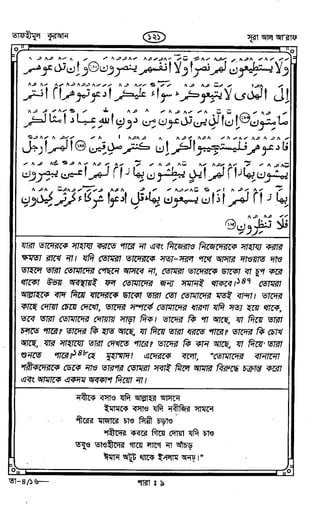 তাফহীমুল কুরআন
১২১
সূরা আল আ'রাফ
وَلَا يَسْتَطِيعُونَ لَهُمْ نَصْرًا وَلَا أَنْفُسَهُمْ يَنْصُرُونَ ۝ وَإِنْ تَدْعُوهُمْ
إِلَى الْهُدَى لَا يَتَّبِعُوكُمْ سَوَاءٌ عَلَيْكُمْ أَدَعَوْتُمُوهُمْ أَمْ أَنْتُمْ
صَامِتُونَ ۝ إِنَّ الَّذِينَ تَدْعُونَ مِنْ دُونِ اللَّهِ عِبَادٌ أَمْثَالُكُمْ
فَادْعُوهُمْ فَلْيَسْتَجِيبُوا لَكُمْ إِنْ كُنْتُمْ صَادِقِينَ ۝ أَلَهُمْ أَرْجُلٌ
يَمْشُونَ بِهَا أَمْ لَهُمْ أَيْدٍ يَبْطِشُونَ بِهَا أَمْ لَهُمْ أَعْيُنٌ يُبْصِرُونَ
بِهَا أَمْ لَهُمْ آذَانٌ يَسْمَعُونَ بِهَا قُلِ ادْعُوا شُرَكَاءَكُمْ ثُمَّ كِيدُونِ
فَلَا تُنْظِرُونِ ۝
যারা তাদেরকে সাহায্য করতে পারে না এবং নিজেরাও নিজেদেরকে সাহায্য করার
ক্ষমতা রাখে না। যদি তোমরা তাদেরকে সত্য-সরল পথে আসার দাওয়াত দাও
তাহলে তারা তোমাদের পেছনে আসবে না, তোমরা তাদেরকে ডাকো বা চুপ করে
থাকো উভয় অবস্থায়ই ফল তোমাদের জন্য সমানই থাকবে।১৪৭ তোমরা
আল্লাহকে বাদ দিয়ে যাদেরকে ডাকো তারা তো তোমাদের মতই বান্দা। তাদের
কাছে দোয়া চেয়ে দেখো, তাদের সম্পর্কে তোমাদের ধারণা যদি সত্য হয়ে থাকে,
তবে তারা তোমাদের দোয়ায় সাড়া দিক। তাদের কি পা আছে, যা দিয়ে তারা
চলতে পারে? তাদের কি হাত আছে, যা দিয়ে তারা ধরতে পারে? তাদের কি চোখ
আছে, যার সাহায্যে তারা দেখতে পারে? তাদের কি কান আছে, যা দিয়ে তারা
শুনতে পারে?১৪৮ হে মুহাম্মাদ! এদেরকে বলো, "তোমাদের বানানো
শরীকদেরকে ডেকে নাও তারপর তোমরা সবাই মিলে আমার বিরুদ্ধে চক্রান্ত করো
এবং আমাকে একদম অবকাশ দিয়ো না।
নবীকে বসাও যদি আল্লাহর আসনে
ইমামকে বসাও যদি নবীজির সামনে
পীরের মাজারে চাও সিন্নী চড়াও
শহীদের কবরে গিয়ে দোয়া যদি চাও
তবুও তাওহীদের গায়ে লাগে না আঁচড়
ঈমান অটুট থাকে ইসলাম অনড়।"
তা-৪/১৬—
পারা : ৯